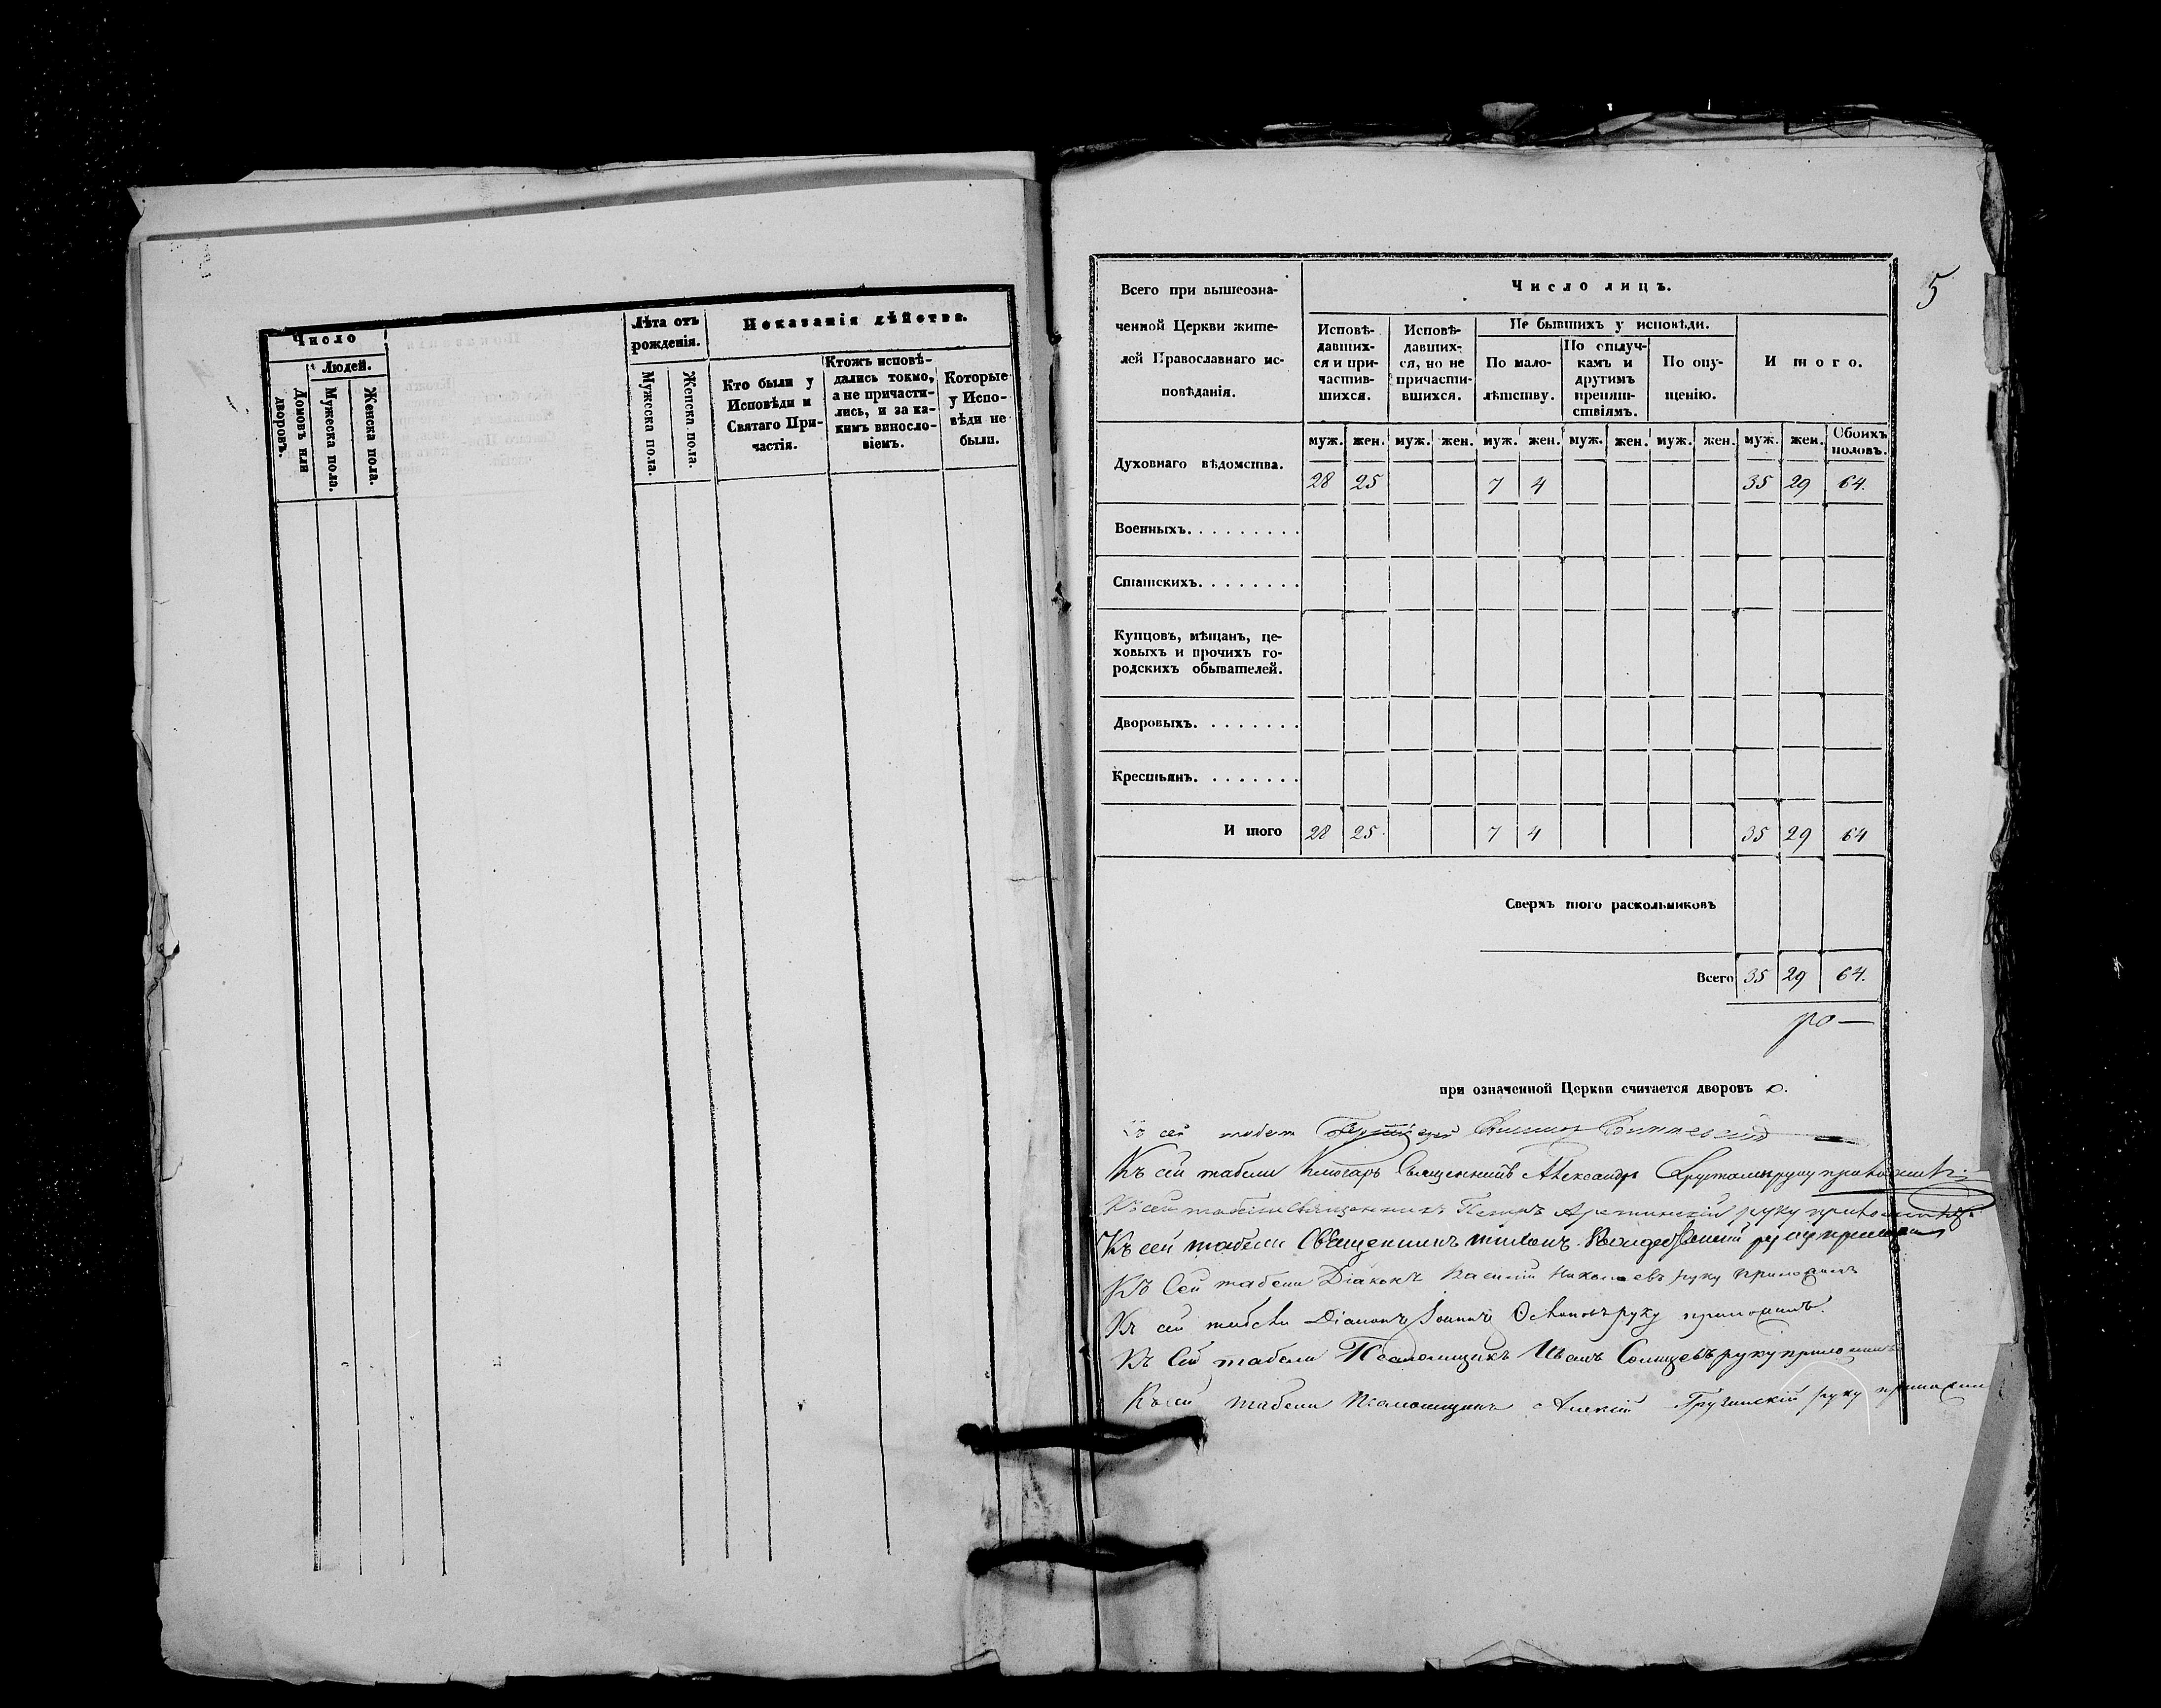 Число
Людей.
Домовъ или дворовъ.
Мужеска пола.
Женска пола.
Лѣта отъ рожденія.
Мужеска пола.
Женска пола.
Показанія дѣйства.
Кто были у
Исповѣди и
Святаго При-
частія.
Ктожъ исповѣ-
дались токмо,
а не причасти-
лись, и за ка-
кимъ виносло-
віемъ.
Которые
у Испо-
вѣди не
были.
5
Всего при вышеозна-
ченной Церкви жите-
лей Православнаго ис-
повѣданія.
Число лицъ.
Исповѣ-
давших-
ся и при-
частив-
шихся.
Исповѣ-
давших-
ся, но не
причасти-
вшихся.
Не бывшихъ у исповѣди.
По мало-
лѣтству.
По отлуч-
камъ и
другимъ
препят-
ствіямъ.
По опу-
щенію.
И того.
муж. жен. муж. жен. муж. жен. муж. жен. муж. жен. муж. жен. Обоихъ половъ.
Духовнаго вѣдомства. 28 25 7 4 35 29 64.
Военныхъ.........
Статскихъ........
Купцовъ, мѣщанъ, це-
ховыхъ и прочихъ го-
родскихъ обывателей.
Дворовыхъ........
Крестьянъ........
И того 28 25 7 4 35 29 64
Сверхъ того раскольниковъ
Всего 35 29 64.
при означенной Церкви считается дворовъ
сей
Къ сей табели Ключарь Священникъ Александръ руку приложилъ
Къ сей табели Священникъ Петръ руку приложилъ
Къ сей табели Священникъ руку приложилъ
Къ Сей табели Діаконъ Василій Николаевъ руку приложилъ
Къ сей табели Діаконъ Іоаннъ руку приложилъ.
Къ Сей табели Псаломщикъ Иванъ Солнцевъ руку приложилъ
Къ сей табели Псаломщикъ Алексій Грузинскій руку приложилъ